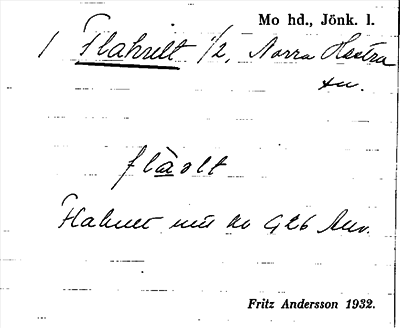 Mo hd., Jönk. l.
1 Flahult 1/2, Norra Hestra
sn.
flàolt
Hahult
Fritz Andersson 1932.